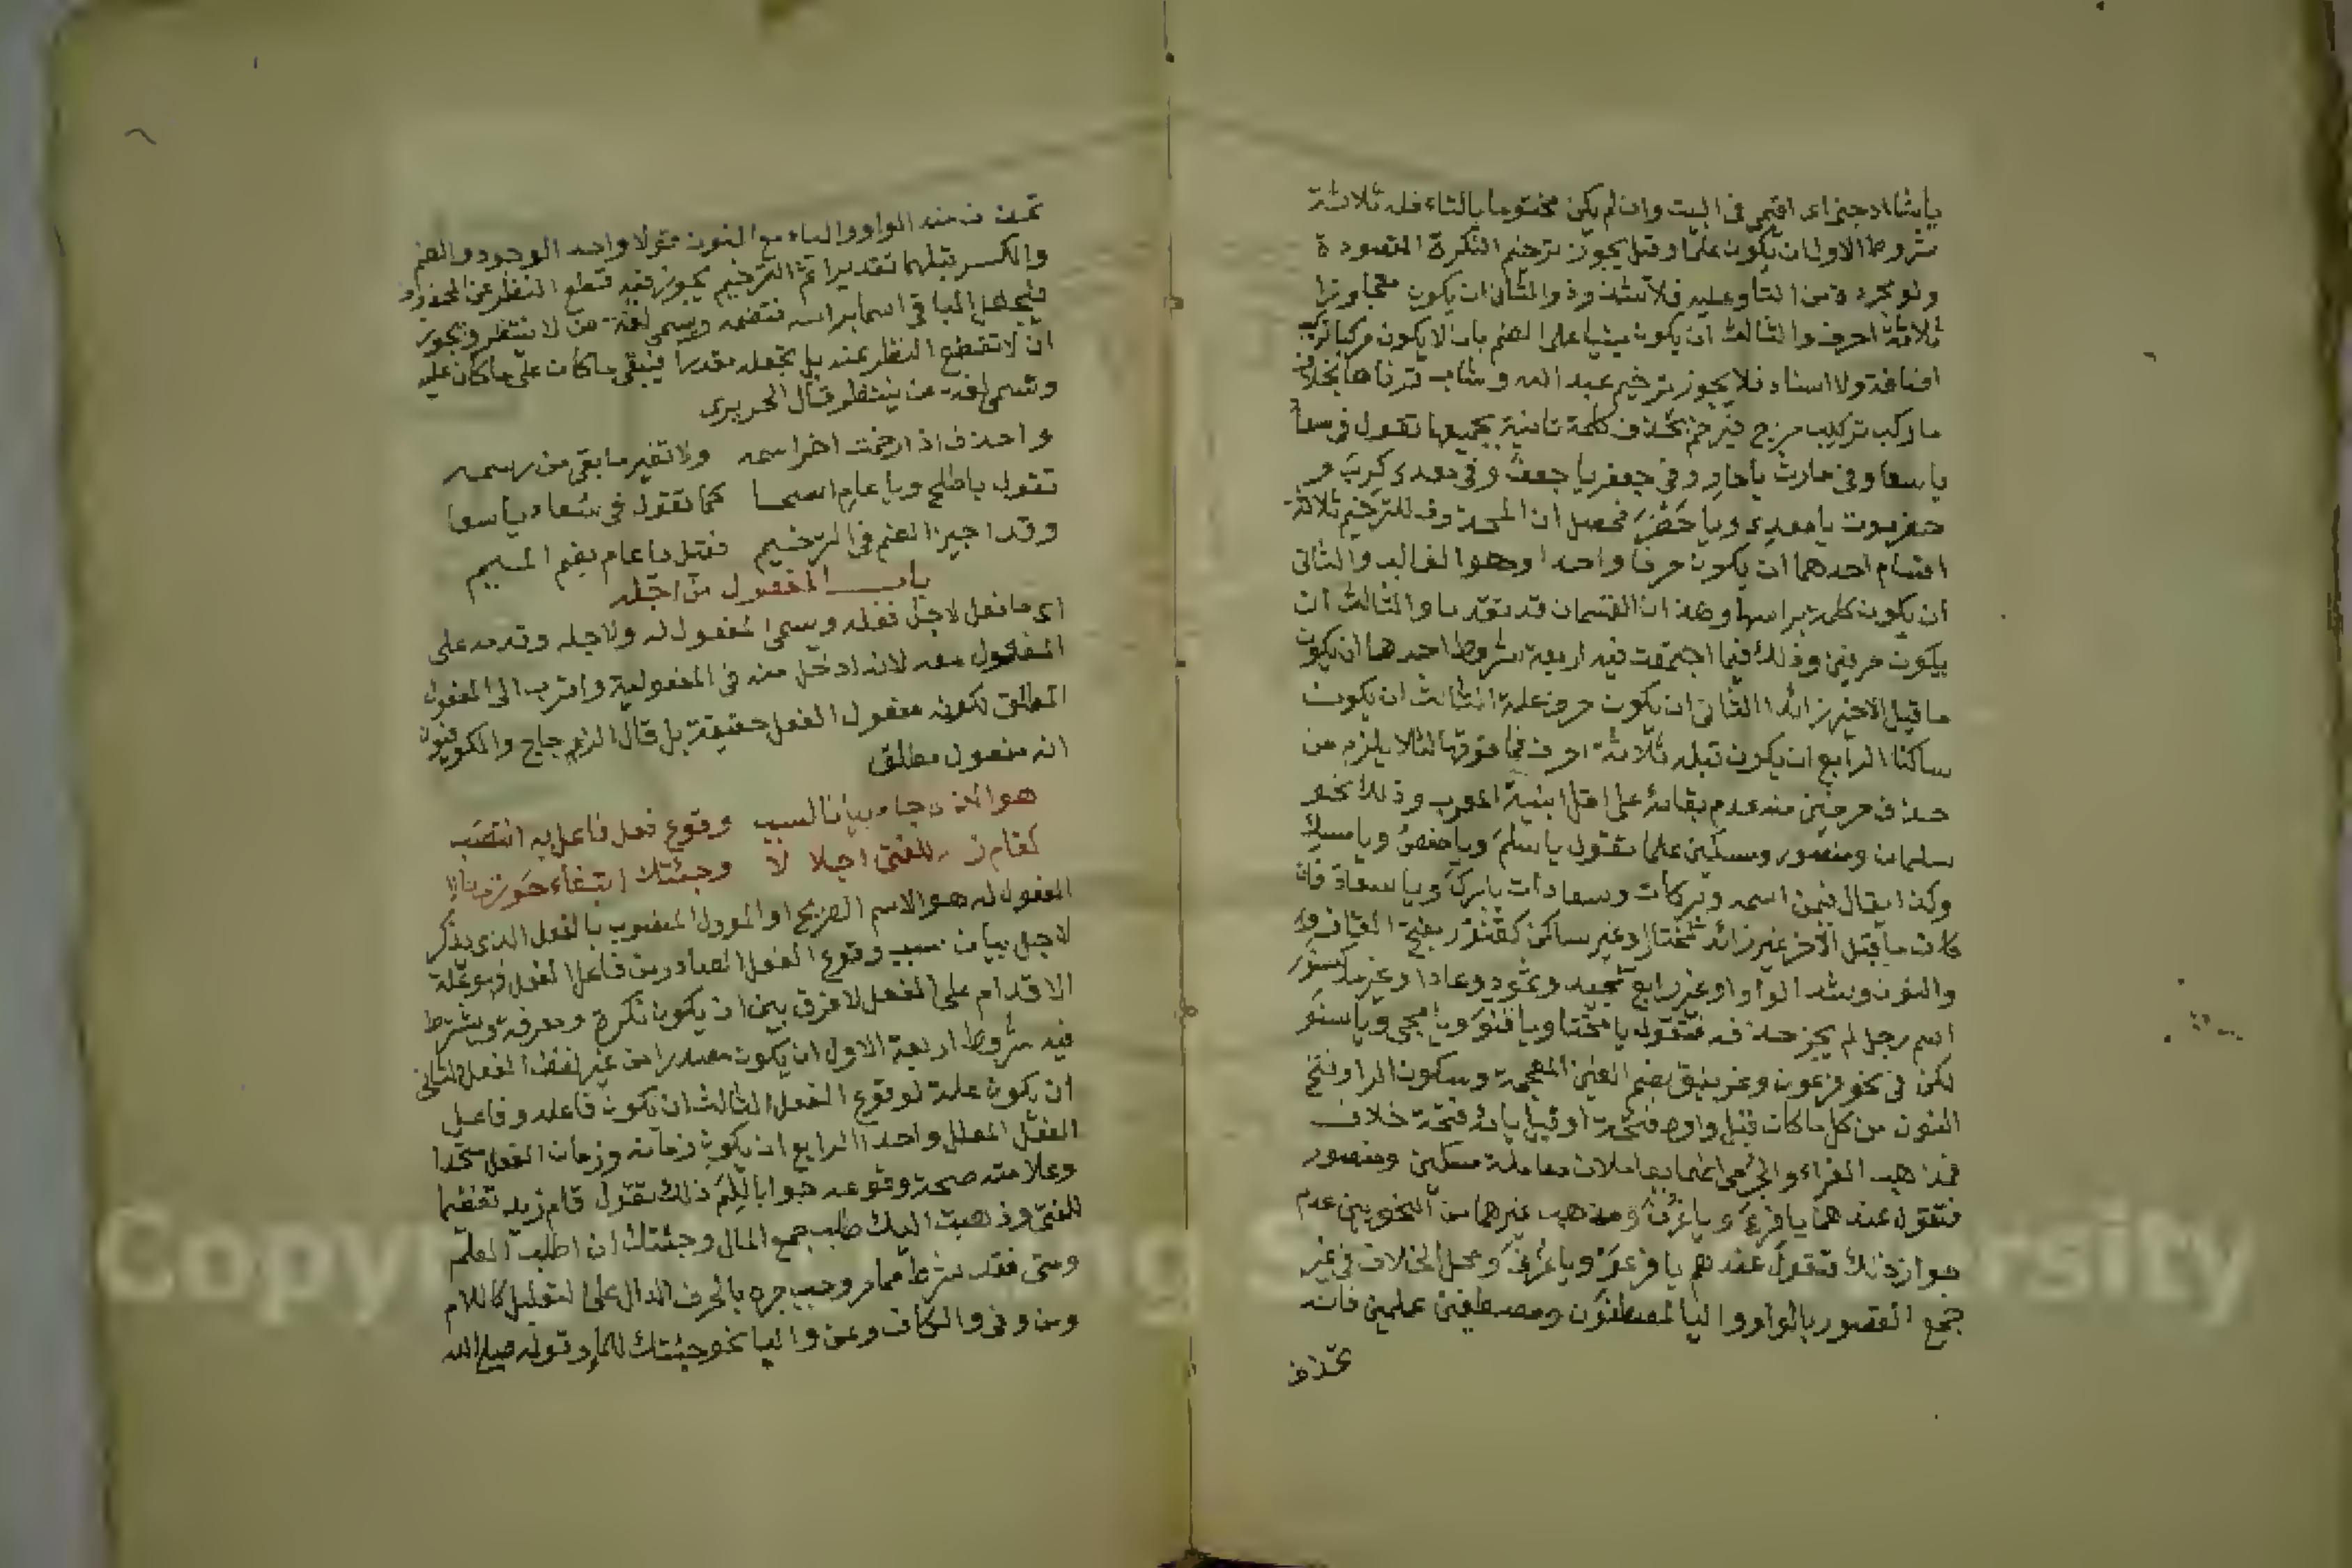 يا شا ادجني اى اقيمي في البيت وان لم يكن مختوما بالتاء فله ثلاثة
شروط الاول ان يكون علما وقيل يجوز ترخيم النكرة المقصودة
ولو مجردة من التا وعليه فلا شذوذ والثاني ان يكون متجاوزا
ثلاثة احرف والثالث ان يكون مبنيا على الضم بان لا يكون مركبا تركيب
اضافة ولا اسناد فلا يجوز ترخيم عبد الله وشاب قرناها بخلاف
ما ركب تركيب مزج فيرخم بحذف كلمة ثانية بجميعها تقول في سعاد
يا سعا وفي حارث يا حار وفي جعفر يا جعف وفي معدي كرب و
حضرموت يا معدي ويا حضر فحصل ان المحذوف للترخيم ثلاثة
اقسام احدهما ان يكون حرفا واحدا وهو الغالب والثاني
ان يكون كلمة براسها وهذان القسمان قد تقدما والثالث ان
يكون حرفين وذلك فيما اجتمعت فيه اربعة شروط احدها ان يكون
ما قبل الاخير زائدا الثاني ان يكون حرف علة الثالث ان يكون
ساكنا الرابع ان يكون قبله ثلاثة احرف فما فوقها لئلا يلزم من
حذف حرفين منه عدم بقائه على اقل ابنية المعرب وذلك نحو
سليمان ومنصور ومسكين علما تقول يا سلم ويا منص ويا مسك
وكذا يقال فيمن اسمه وبركات وسعادات يا برك ويا سعاد فان
كان ما قبل الاخر غير زائد كمختار او غير ساكن كقنور بفتح القاف
والنون وشد الواو او غير رابع كمجيد وثمود وعاد او غير مد كسنور
اسم رجل لم يجز حذفه فتقول يا مختا ويا قنو ويا مجي ويا سنو
لكن في نحو فرعون وغرنيق بضم الغين المعجمة وسكون الرا وفتح
النون من كل ما كان قبل واوه فتحة او قبل يائه فتحة خلاف
فمذهب الفراء والجرمي انهما يعاملان معاملة مسكين ومنصور
فتقول عندهما يا فرع ويا غرن ومذهب غيرهما من النحويين عدم
جواز ذلك فتقول عندهم يا فرعو ويا غرني ومحل الخلاف في غير
جمع المقصور بالواو واليا لمصطفون ومصطفين علمين فانه
تحذف
تحذف منه الواو والياء مع النون قولا واحدا لوجود الضم
والكسر قبلهما تقديرا ثم الترخيم يجوز فيه قطع النظر عن المحذوف
فيجعل الباقي اسما براسه فتضمه ويسمى لغة من لا ينتظر ويجوز
ان لا تقطع النظر عنه بل تجعله مقدرا فيبقى ما كان على ما كان عليه
وتسمى لغة من ينتظر قال الحريري
واحذف اذا رخمت اخر اسمه ولا تغير ما بقي من رسمه
تقول يا طلح ويا عام اسمعا كما تقول في سعاد يا سعا
وقد اجيز الضم في الترخيم فقيل يا عام بضم الميم
باب المفعول من اجله
اى ما فعل لاجل فعله ويسمى المفعول له ولاجله وقدمه على
المفعول معه لانه ادخل منه في المفعولية واقرب الى المفعول
المطلق لكونه مفعول الفعل حقيقة بل قال الزجاج والكوفيون
انه مفعول مطلق
هو الذي جاء بيانا لسبب وقوع فعل فاعل به انتصب
كقام زيد للفتى اجلالا وجئتك ابتغاء حوزي مالا
المفعول له هو الاسم الصريح او المؤول المنصوب بالفعل الذي يذكر
لاجل بيان سبب وقوع الفعل الصادر من فاعل الفعل فهو علة
الاقدام على الفعل لا فرق بين ان يكون نكرة ومعرفة ويشترط
فيه شروط اربعة الاول ان يكون مصدرا من غير لفظ الفعل الثاني
ان يكون علة لوقوع الفعل الثالث ان يكون فاعله وفاعل
الفعل المعلل واحدا الرابع ان يكون زمانه وزمان الفعل متحدا
وعلامته صحة وقوعه جوابا للم ذلك تقول قام زيد تعظيما
للفتى وذهبت اليك طلب جمع المال وجئتك ان اطلب العلم
ومتى فقد شرط مما مر وجب جره بالحرف الدال على التعليل كاللام
ومن وفي والكاف وعن واليا نحو جئتك للماء وقوله صلى الله